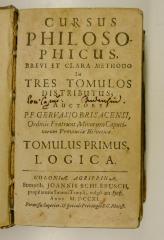 CURSUS
PHILOSO-
PHICUS,
BREVI ET CLARA METHODO
In
TRES TOMULOS
DISTRIBUTUS,
AUCTORE
P.F. GERVASIO BRISACENSI,
Ordinis Fratrum Minorum Capuci-
norum Provinciæ
TOMULUS PRIMUS,
LOGICA.
COLONIÆ AGRIPPINÆ,
Sumptib. JOANNIS SCHLEBUSCH,
Anno M.DCCXI.